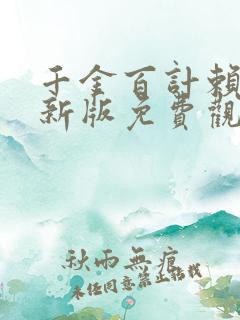 千金百計賴
新版免費觀
秋雨無痕
未經同意禁止轉載